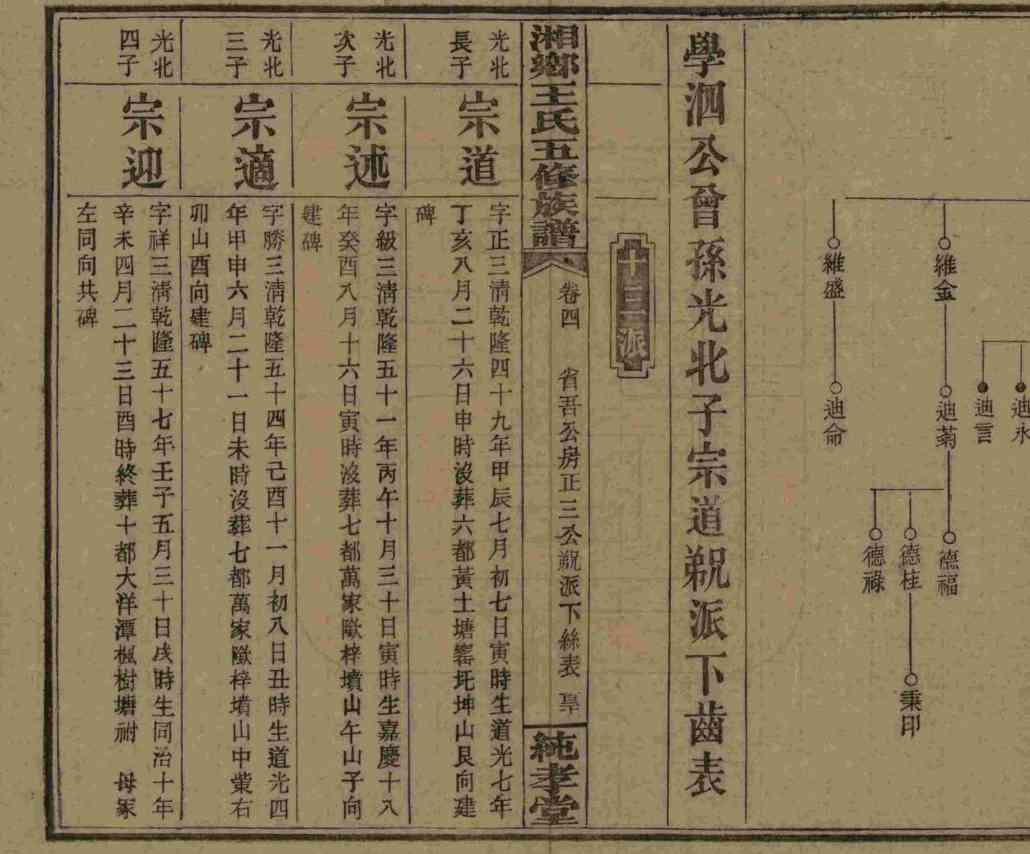 維金
維盛
迪永
迪言
迪菊
迪命
德福
德桂
德祿
秉印
學泗公曾孫光北子宗道派下齒表
十三派
湘鄉王氏五修族譜
卷四
省吾公房正三公派下絲表
純孝堂
光北長子
宗道
字正三清乾隆四十九年甲辰七月初七日寅時生道光七年
丁亥八月二十六日申時沒葬六都黃土塘窰圫坤山艮向建
碑
光北次子
宗述
字級三清乾隆五十一年丙午十月三十日寅時生嘉慶十八
年癸酉八月十六日寅時沒葬七都萬家梓墳山午山子向
建碑
光北三子
宗適
字勝三清乾隆五十四年己酉十一月初八日丑時生道光四
年甲申六月二十一日未時沒葬七都萬家梓墳山中塋右
卯山酉向建碑
光北四子
宗迎
字祥三清乾隆五十七年壬子五月三十日戌時生同治十年
辛未四月二十三日酉時終葬十都大洋潭楓樹塘祔 母冢
左同向共碑